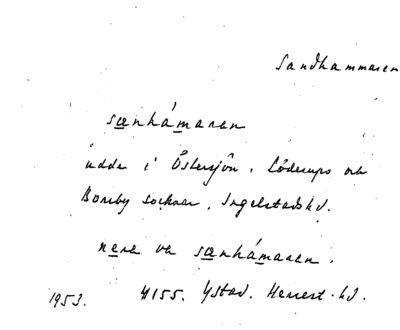 Sandhammaren
sænhámaren
udde i Östersjön, Löderups och
Borrby socknar, Ingelstads hd.
nere va sænhámaren.
1953. 4155. Ystad. Herrest. hd.